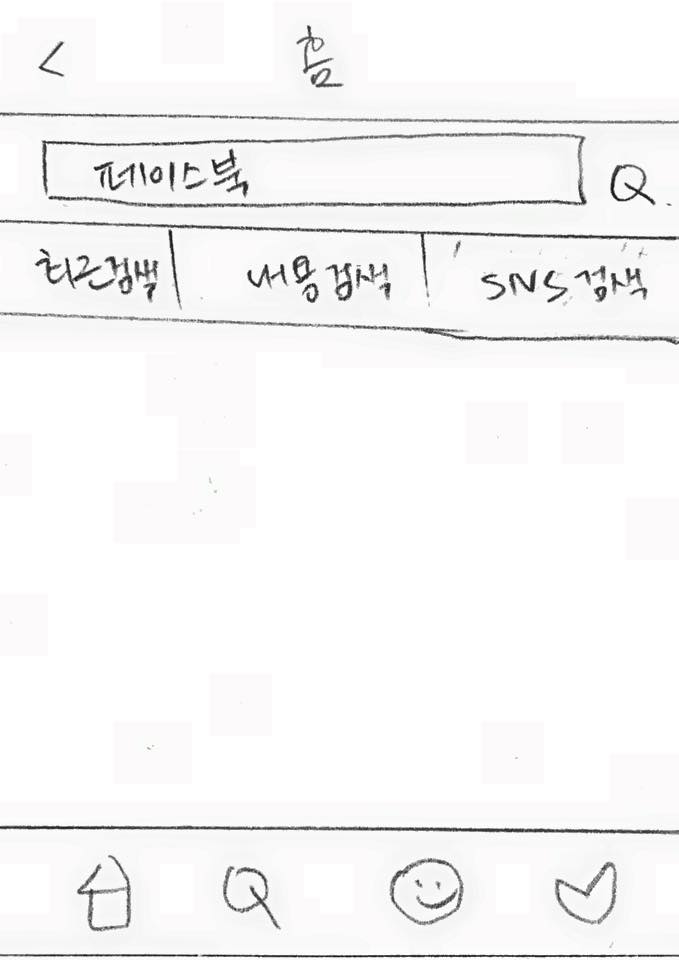 < 홈
페이스북
최근검색 내용검색 SNS 검색